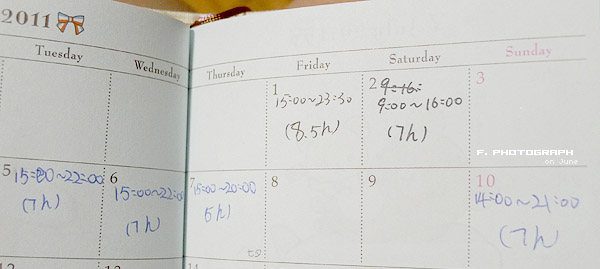 2011
Tuesday Wednesday Thursday Friday Saturday Sunday
1 2 3
15:00~23:30 9:16:
9:00~16:00
(8.5h) (7h)
F. PHOTOGRAPH
on June
5 6 7 8 9 10
15:00~22:00 15:00~22:00 15:00~20:00 14:00~21:00
(7h) (7h) 5h) (7h
七夕
12 13